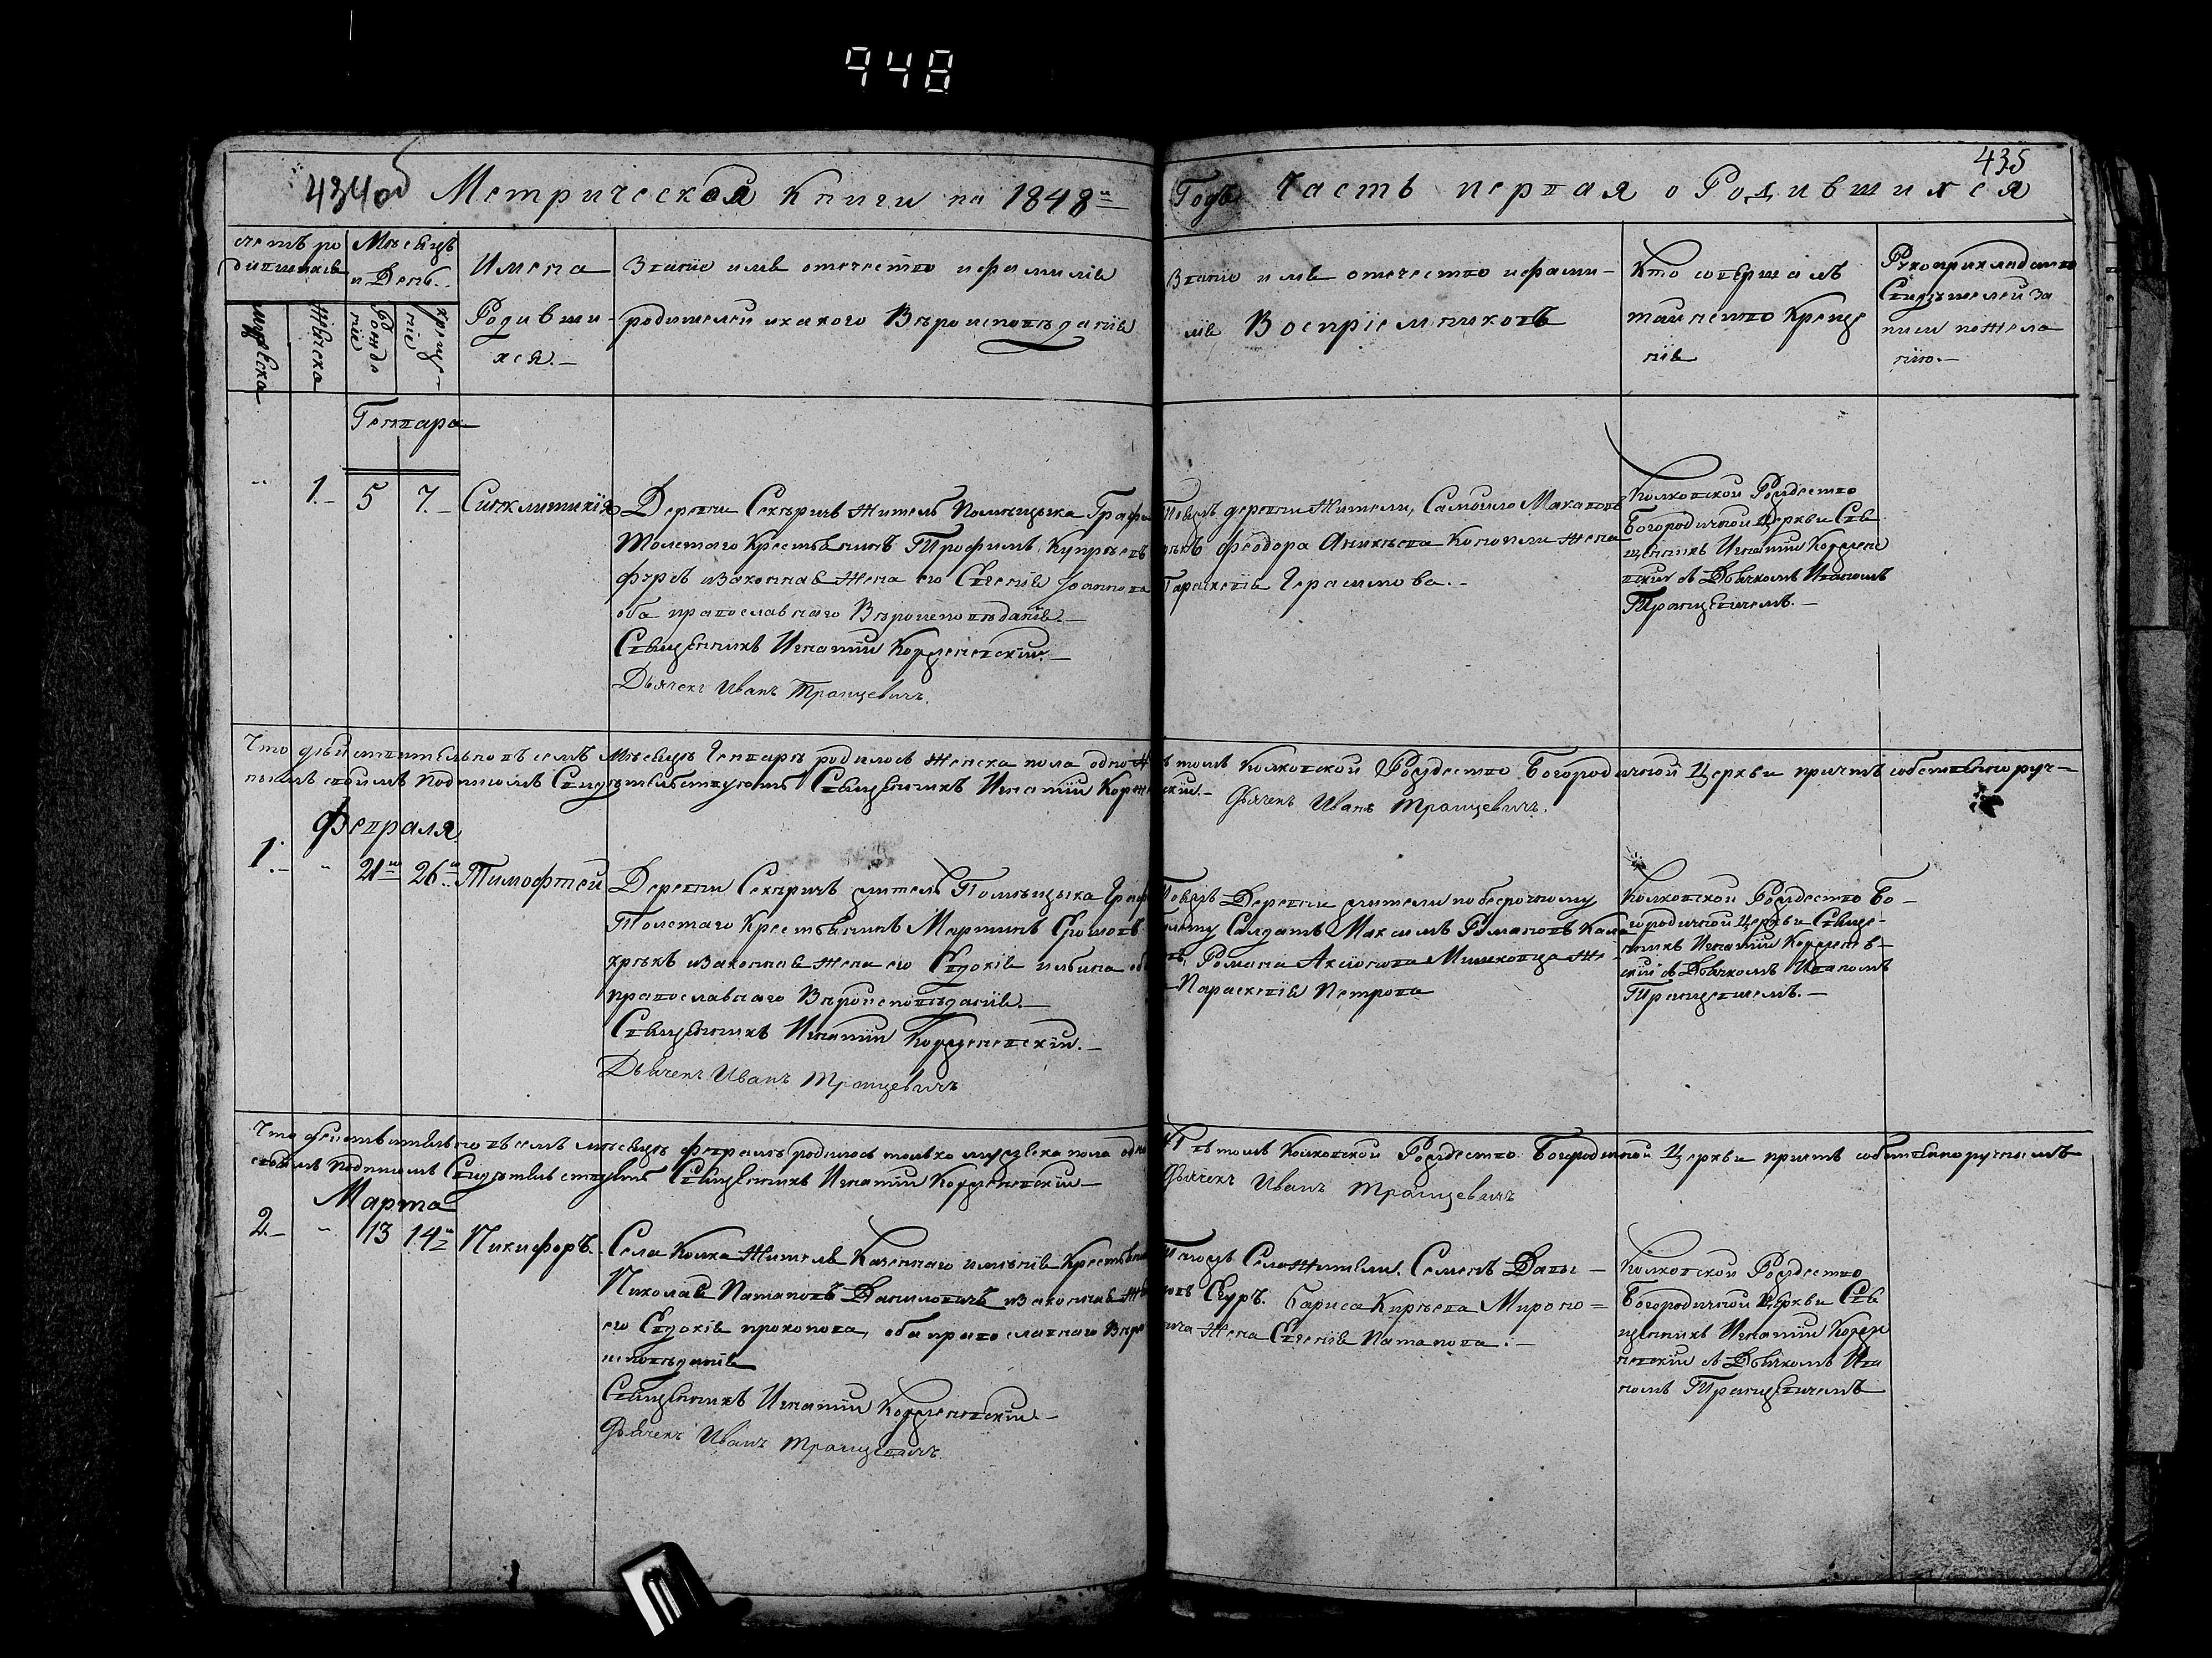 948
434об
435
Метрической Книги на 1848й
Годъ Часть первая о Родившихся
счетъ ро
дившихся
Мѣсяцъ
и День.
Имена
Родивши-
хся.-
мужеска
женска
Рожде
нія
креще-
нія
Званіе имя отечество и фамилія
родителей и какого Вѣроисповѣданія
Званіе имя отечество и фами-
лія Воспріемниковъ
Кто совершалъ
таинство Креще
нія
Рукоприкладство
Свидѣтелей за
писи по жела
нію.-
Генваря
1.-
5
7.-
Синклитикія
Деревни Секѣричъ житель Помѣщыка Графа
Толстаго Крестьянинъ Трофимъ Купрѣевъ
законная жена его Евгенія Іоаннова
оба православнаго Вѣроисповѣданія.-
Священникъ Игнатій Корженевскій.-
Дьячекъ Иванъ Транцевичъ.
деревни Жители, Самойло Макаповъ
Феодора Аникѣева Конопели жена
Параскевія Герасимова.-
Колковской Рождество
Богородичной Церкви Свя
щенникъ Игнатій Коржене
вскій съ Дьячкомъ Иваномъ
Транцевичемъ.-
Что дѣйствительно въ семъ Мѣсяцѣ Генварѣ родилось женска пола одно
въ томъ Колковской Рождество Богородичной Церкви причтъ собственноруч=
нымъ своимъ подписомъ Свидѣтельствуютъ Священникъ Игнатій Корженевскій.-
Дьячекъ Иванъ Транцевичъ.
Февраля
1.-
21го
26го
Тимофтей
Деревни Секѣричъ житель Помѣщыка Графа
Толстаго Крестьянинъ Мартинъ
законная жена его Евдокія ильина оба
православнаго Вѣроисповѣданія.-
Священникъ Игнатій Корженевскій.-
Дьячекъ Иванъ Транцевичъ
Деревни жители по безсрочному
Салдатъ Максимъ Романовъ
Романа Аксіонова жe-
Параскевія Петрова
Колковской Рождество Бо-
городичной Церкви Свяще-
нникъ Игнатій Корженев-
скій съ Дьячкомъ Иваномъ
Транцевичемъ.-
Что дѣйствительно въ семъ мѣсяцѣ февралѣ родилось только мужеска пола одно
въ томъ Колковской Рождество Богородичной Церкви причтъ собственноручнымъ
своимъ подписомъ Свидѣтельствуютъ Священникъ Игнатій Корженевскій-
Дьячекъ Иванъ Транцевичъ
Марта
2.-
13
14го
Никифоръ.
Села Колка Житель Казеннаго имѣнія Крестьянинъ
Николай Патаповъ Даниловичъ законная жена
его Евдокія прокопова, оба православнаго Вѣро
исповѣданія
Священникъ Игнатій Корженевскій-
Дьячекъ Иванъ Транцевичъ
Села Жители. Семенъ
Бариса Кирѣева Мироно=
вича жена Евгенія Патапова.-
Колковской Рождество
Богородичной Церкви Свя
щенникъ Игнатій Корже
невскій съ Дьячкомъ Ива
номъ Транцевичемъ